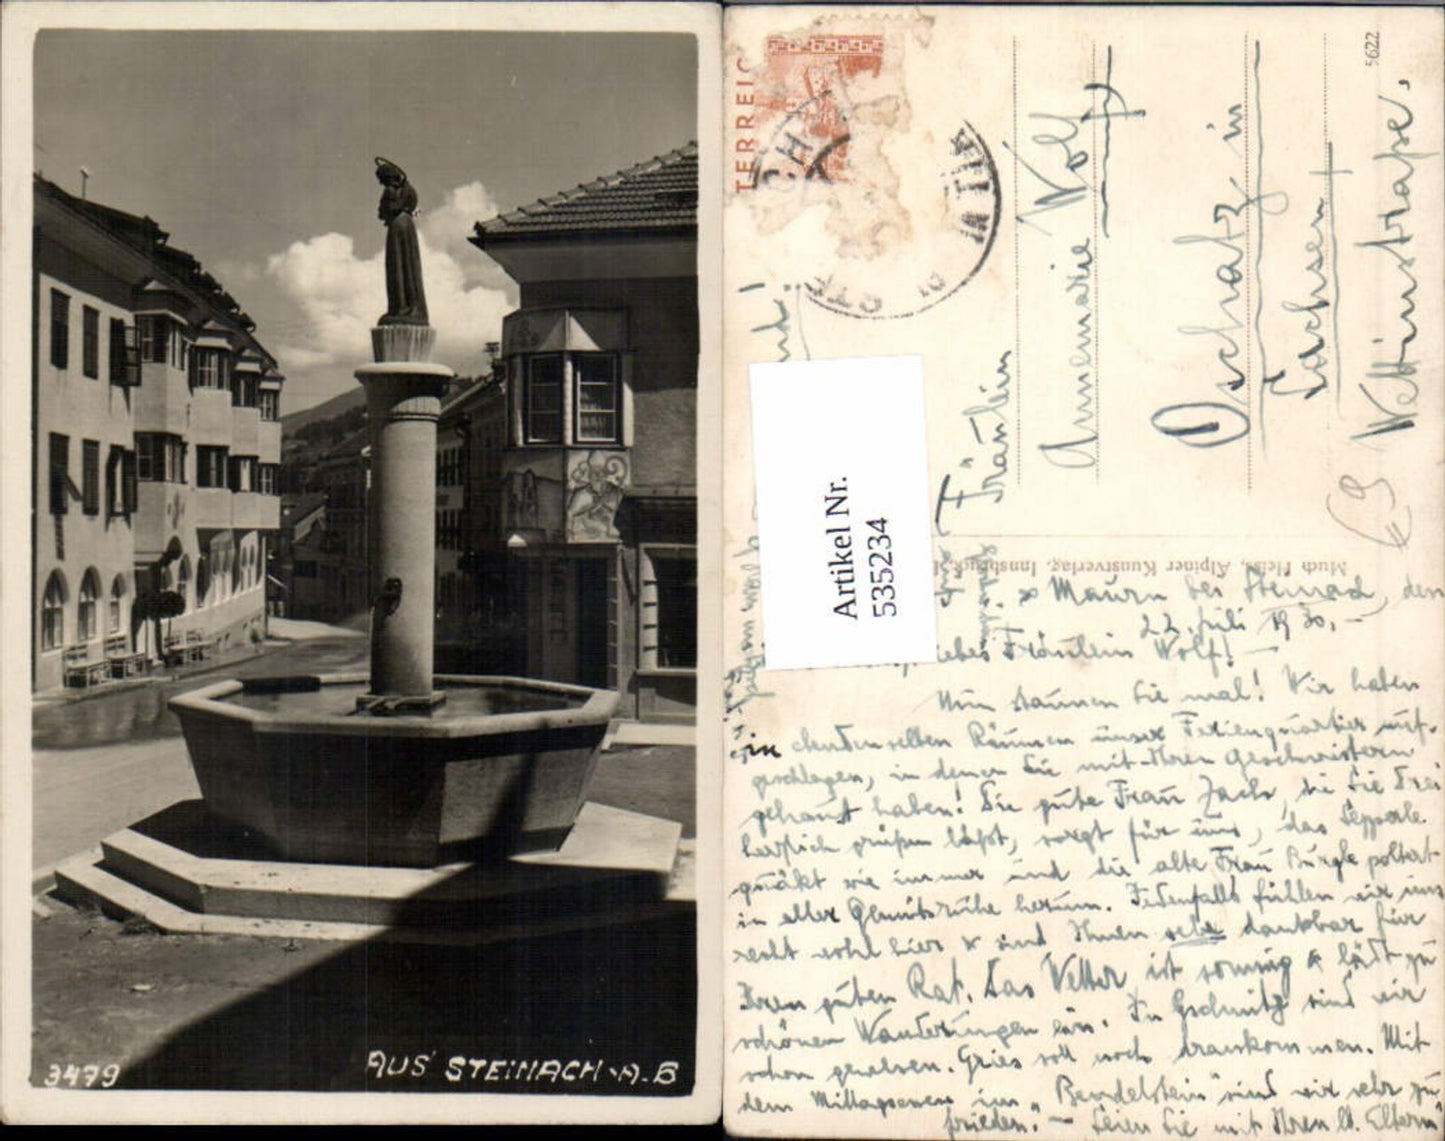 3479
AUS STEINACH·A·B
TERREIC
5622
Artikel Nr.
535234
Fräulein
Annemarie Wolf
Oschatz in
Sachsen
Wettinstraße.
Much Heiss, Alpiner Kunstverlag, Innsbruck
Mauern bei Steinach, den
22. Juli 1930.
Liebes Fräulein Wolf!
Nun staunen Sie mal! Wir haben
in denselben Räumen unser Ferienquartier auf-
geschlagen, in denen Sie mit Ihren Geschwistern
gehaust haben! Die gute Frau Zach, die Sie
herzlich grüßen läßt, sorgt für uns, das Sepperle
quäkt wie immer und die alte Frau Bürgle poltert
in aller Gemütsruhe herum. Jedenfalls fühlen wir uns
recht wohl hier & sind Ihnen sehr dankbar für
Ihren guten Rat. Das Wetter ist sonnig & lädt zu
schönen Wanderungen ein. In Gschnitz sind wir
schon gewesen. Gries soll noch drankommen. Mit
dem Mittagessen im "Bendelstein" sind wir sehr zu
frieden. — Seien Sie mit Ihren lb. Eltern